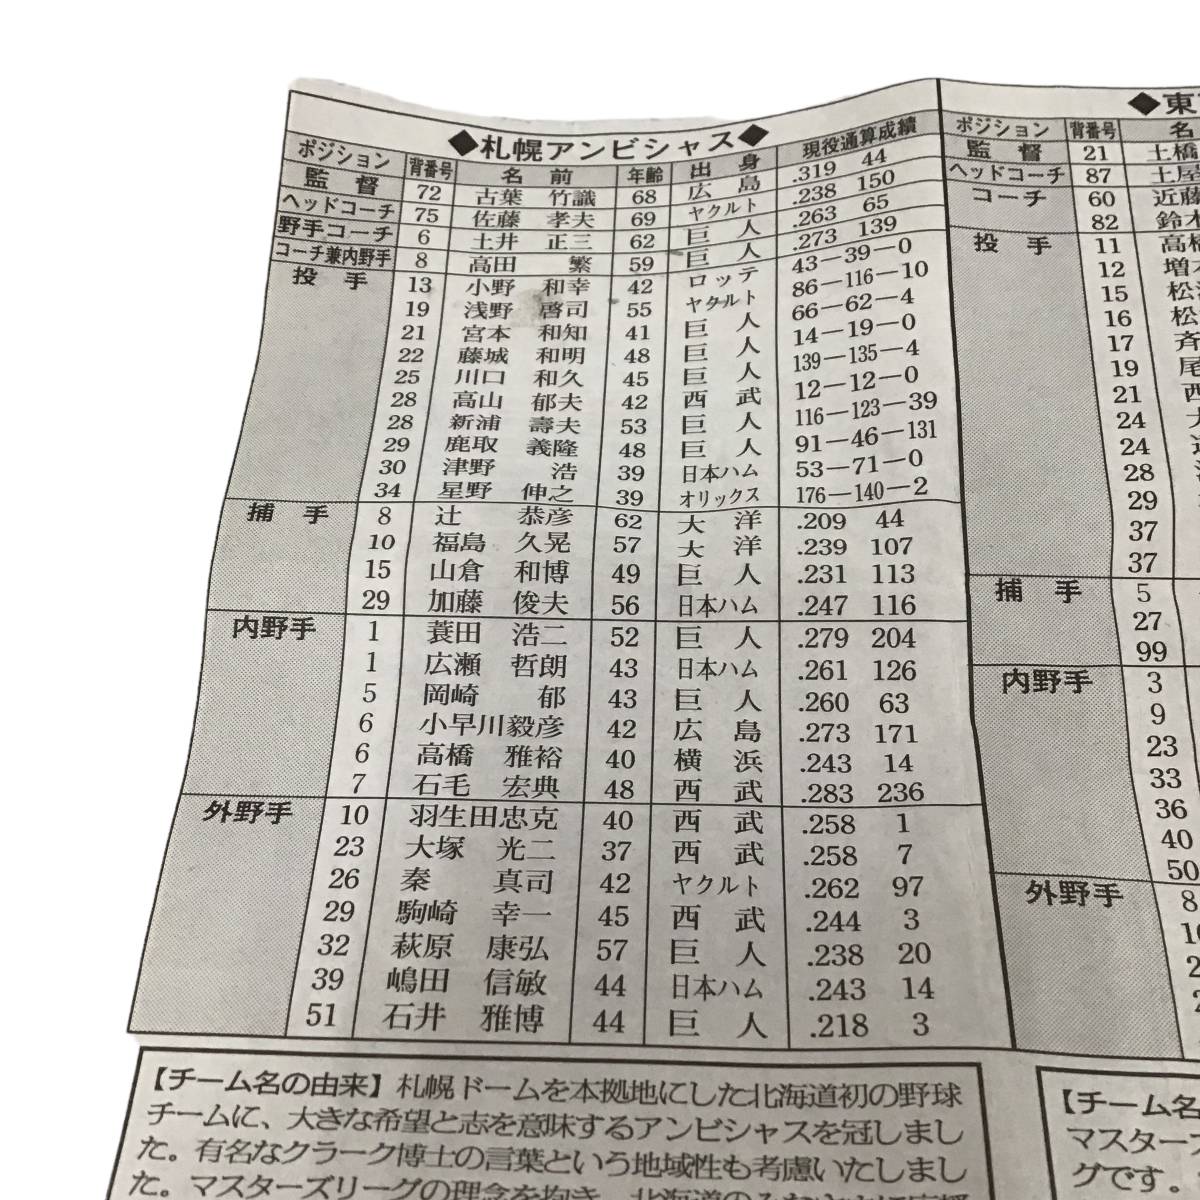 ◆札幌アンビシャス◆
ポジション 背番号 名前 年齢 出身 現役通算成績
監督 72 古葉 竹識 68 広島 .319 44
ヘッドコーチ 75 佐藤 孝夫 69 ヤクルト .238 150
野手コーチ 6 土井 正三 62 巨人 .263 65
コーチ兼内野手 8 高田 繁 59 巨人 .273 139
投手 13 小野 和幸 42 ロッテ 43-39-0
19 浅野 啓司 55 ヤクルト 86-116-10
21 宮本 和知 41 巨人 66-62-4
22 藤城 和明 48 巨人 14-19-0
25 川口 和久 45 巨人 139-135-4
28 高山 郁夫 42 西武 12-12-0
28 新浦 壽夫 53 巨人 116-123-39
29 鹿取 義隆 48 巨人 91-46-131
30 津野 浩 39 日本ハム 53-71-0
34 星野 伸之 39 オリックス 176-140-2
捕手 8 辻 恭彦 62 大洋 .209 44
10 福島 久晃 57 大洋 .239 107
15 山倉 和博 49 巨人 .231 113
29 加藤 俊夫 56 日本ハム .247 116
内野手 1 蓑田 浩二 52 巨人 .279 204
1 広瀬 哲朗 43 日本ハム .261 126
5 岡崎 郁 43 巨人 .260 63
6 小早川毅彦 42 広島 .273 171
6 高橋 雅裕 40 横浜 .243 14
7 石毛 宏典 48 西武 .283 236
外野手 10 羽生田忠克 40 西武 .258 1
23 大塚 光二 37 西武 .258 7
26 秦 真司 42 ヤクルト .262 97
29 駒崎 幸一 45 西武 .244 3
32 萩原 康弘 57 巨人 .238 20
39 嶋田 信敏 44 日本ハム .243 14
51 石井 雅博 44 巨人 .218 3
【チーム名の由来】札幌ドームを本拠地にした北海道初の野球
チームに、大きな希望と志を意味するアンビシャスを冠しまし
た。有名なクラーク博士の言葉という地域性も考慮いたしまし
た。マスターズリーグの理念を抱き、北海道のみなさまに
◆東
ポジション 背番号 名
監督 21 土橋
ヘッドコーチ 87 土屋
コーチ 60 近藤
82 鈴木
投手 11 高橋
12 増
15 松
16 松
17 斉
19 尾
21 西
24
24
28
29
37
37
捕手 5
27
99
内野手 3
9
23
33
36
40
50
外野手 8
【チーム名
マスターズ
グです。